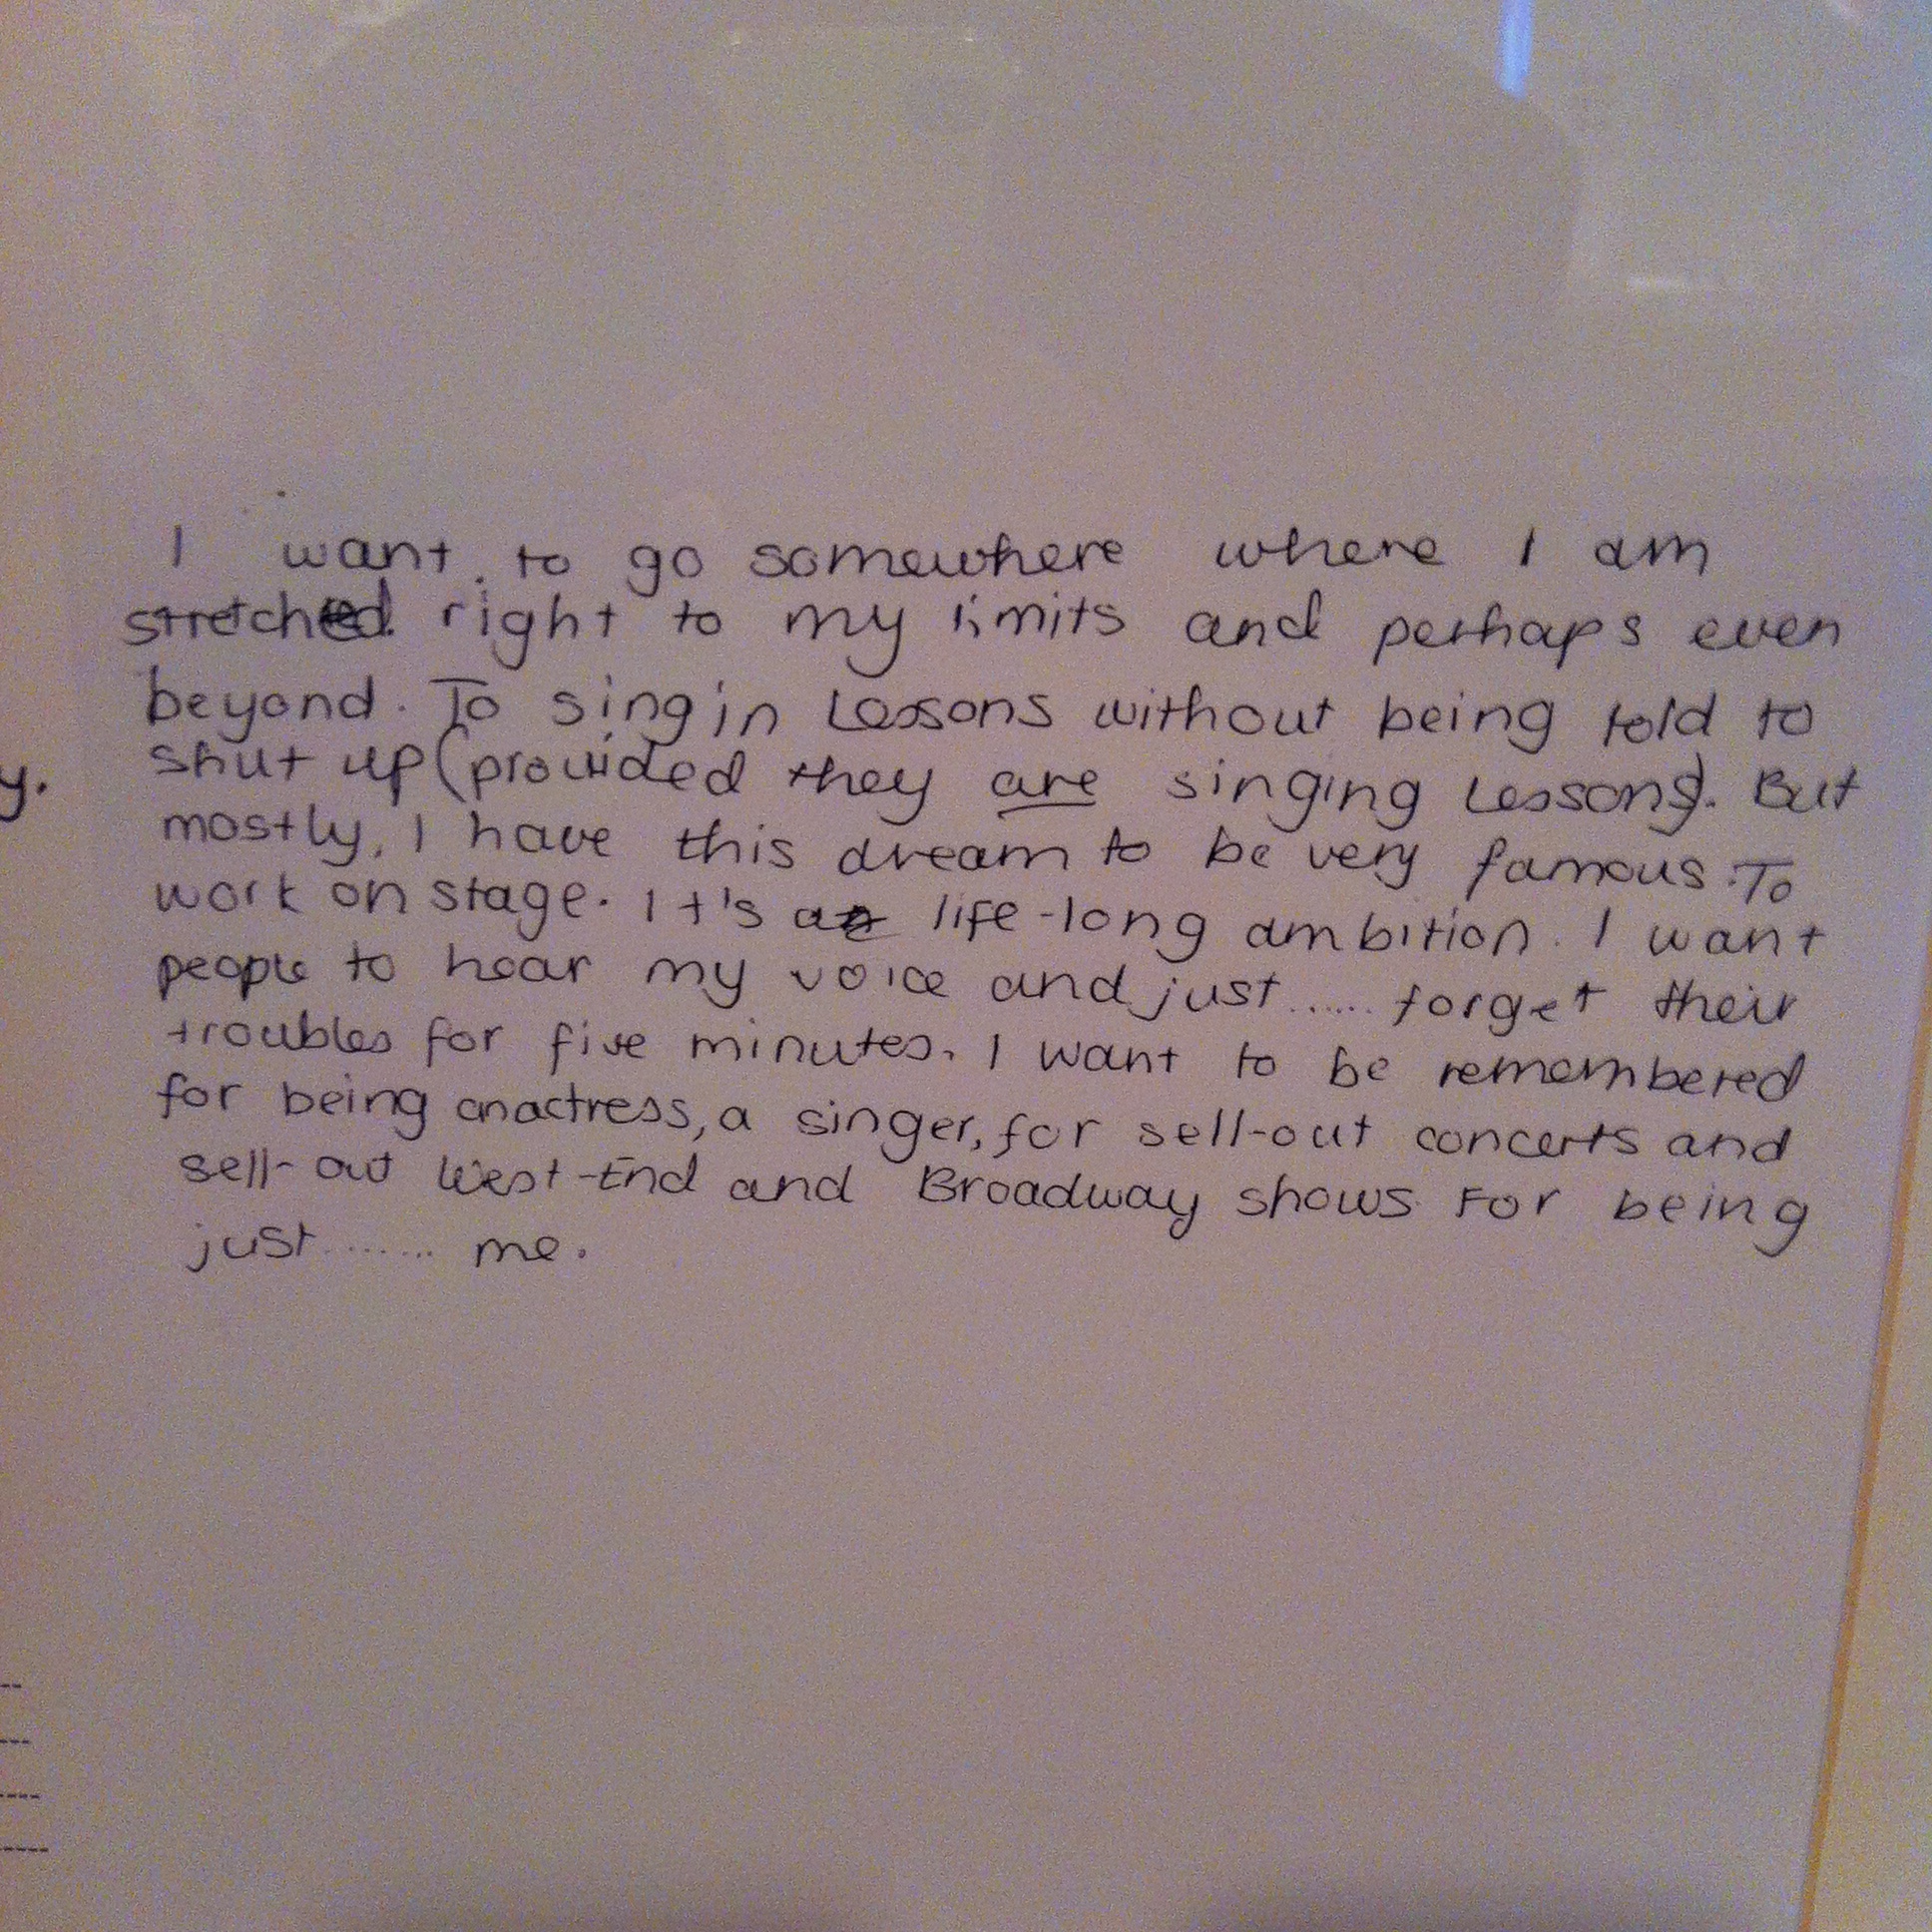 I want to go somewhere where I am
stretched right to my limits and perhaps even
beyond. To sing in Lessons without being told to
y.
shut up (provided they are singing Lessons). But
mostly, I have this dream to be very famous. To
work on stage. It's a life-long ambition. I want
people to hear my voice and just...... forget their
troubles for five minutes. I want to be remembered
for being an actress, a singer, for sell-out concerts and
sell-out West-End and Broadway shows For being
just....... me.